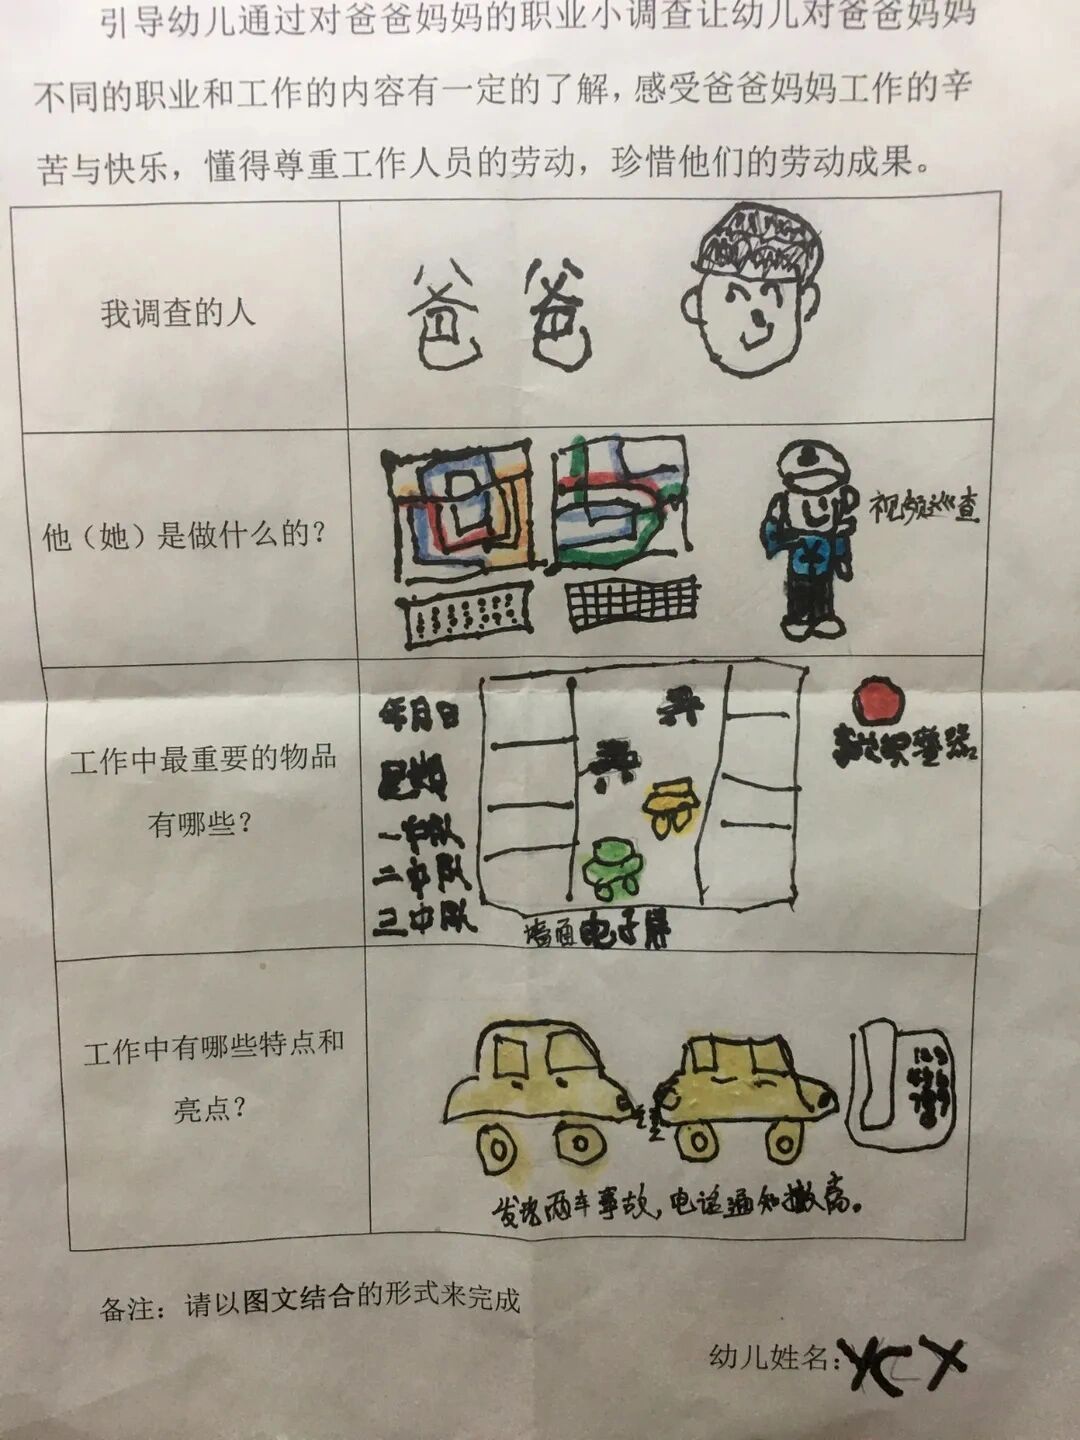 引导幼儿通过对爸爸妈妈的职业小调查让幼儿对爸爸妈妈
不同的职业和工作的内容有一定的了解，感受爸爸妈妈工作的辛
苦与快乐，懂得尊重工作人员的劳动，珍惜他们的劳动成果。
我调查的人
爸 爸
他（她）是做什么的？
视频巡查
工作中最重要的物品
有哪些？
年月日
一中队
二中队
三中队
墙面电子屏
工作中有哪些特点和
亮点？
发现两车事故，电话通知撤离。
备注：请以图文结合的形式来完成
幼儿姓名：